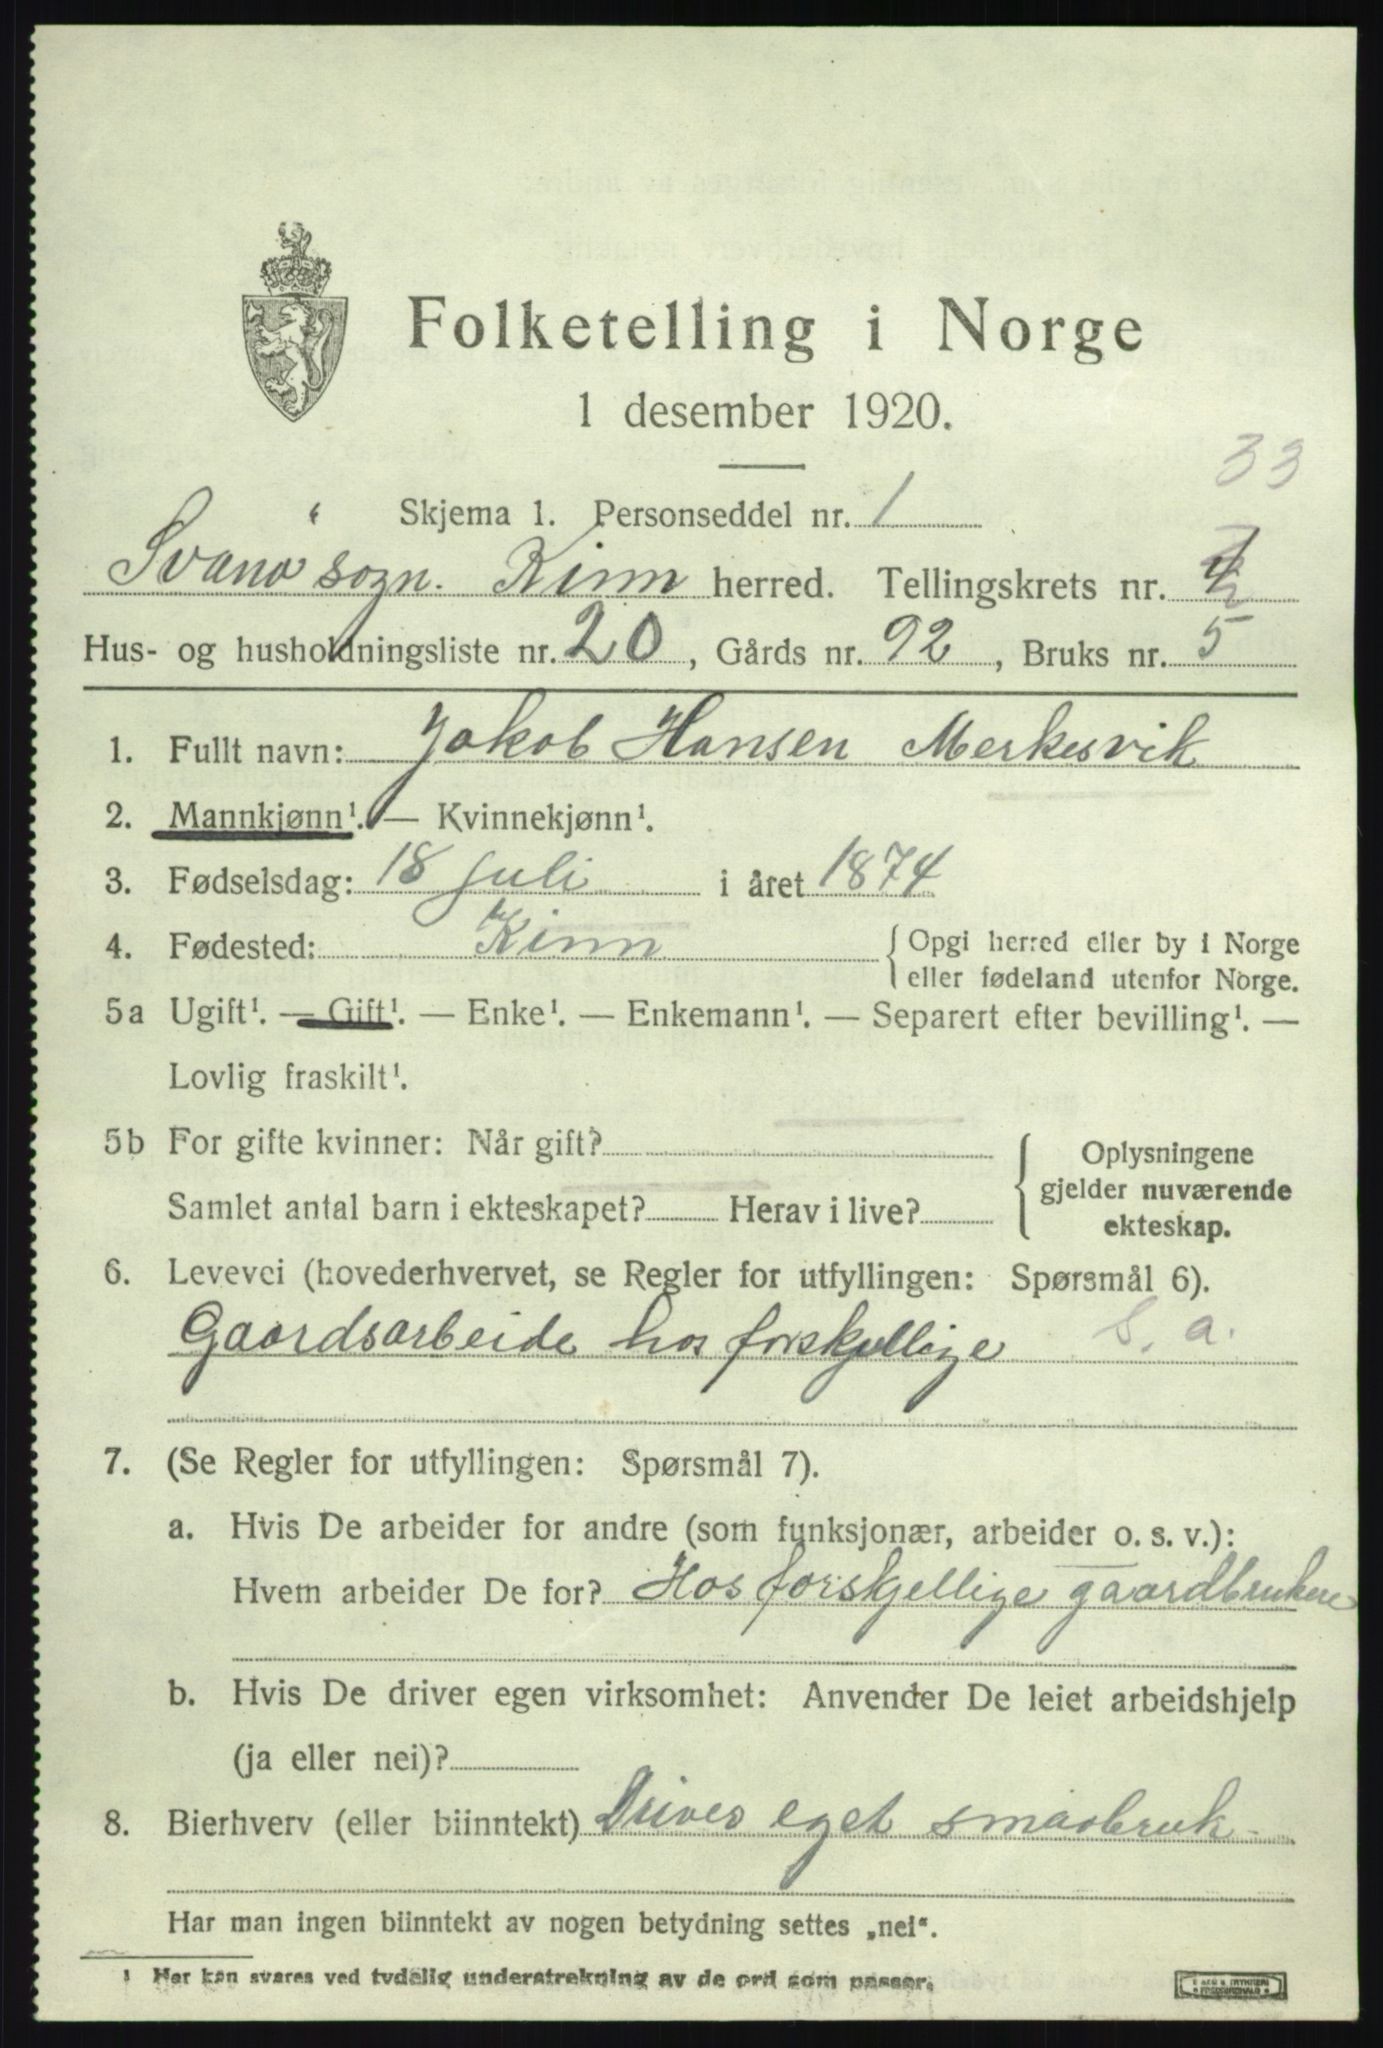 Folketelling i Norge
1 desember 1920.
33
Skjema 1. Personseddel nr. 1
Svanø sogn. Kinn herred. Tellingskrets nr.
Hus- og husholdningsliste nr. 20, Gårds nr. 92, Bruks nr. 5
1. Fullt navn: Jakob Hansen Merkesvik
2. Mannkjønn¹. — Kvinnekjønn¹.
3. Fødselsdag: 18 juli i året 1874
4. Fødested: Kinn { Opgi herred eller by i Norge
eller fødeland utenfor Norge.
5a Ugift¹. — Gift¹. — Enke¹. — Enkemann¹. — Separert efter bevilling¹. —
Lovlig fraskilt¹.
5b For gifte kvinner: Når gift?
Samlet antal barn i ekteskapet? Herav i live?
{ Oplysningene
gjelder nuværende
ekteskap.
6. Levevei (hovederhvervet, se Regler for utfyllingen: Spørsmål 6).
Gaardsarbeide hos forskjellige S. a.
7. (Se Regler for utfyllingen: Spørsmål 7).
a. Hvis De arbeider for andre (som funksjonær, arbeider o. s. v.):
Hvem arbeider De for? Hos forskjellige gaardbrukere
b. Hvis De driver egen virksomhet: Anvender De leiet arbeidshjelp
(ja eller nei)?
8. Bierhverv (eller biinntekt) Driver eget smaabruk
Har man ingen biinntekt av nogen betydning settes „nei“.
¹ Her kan svares ved tydelig understrekning av de ord som passer.